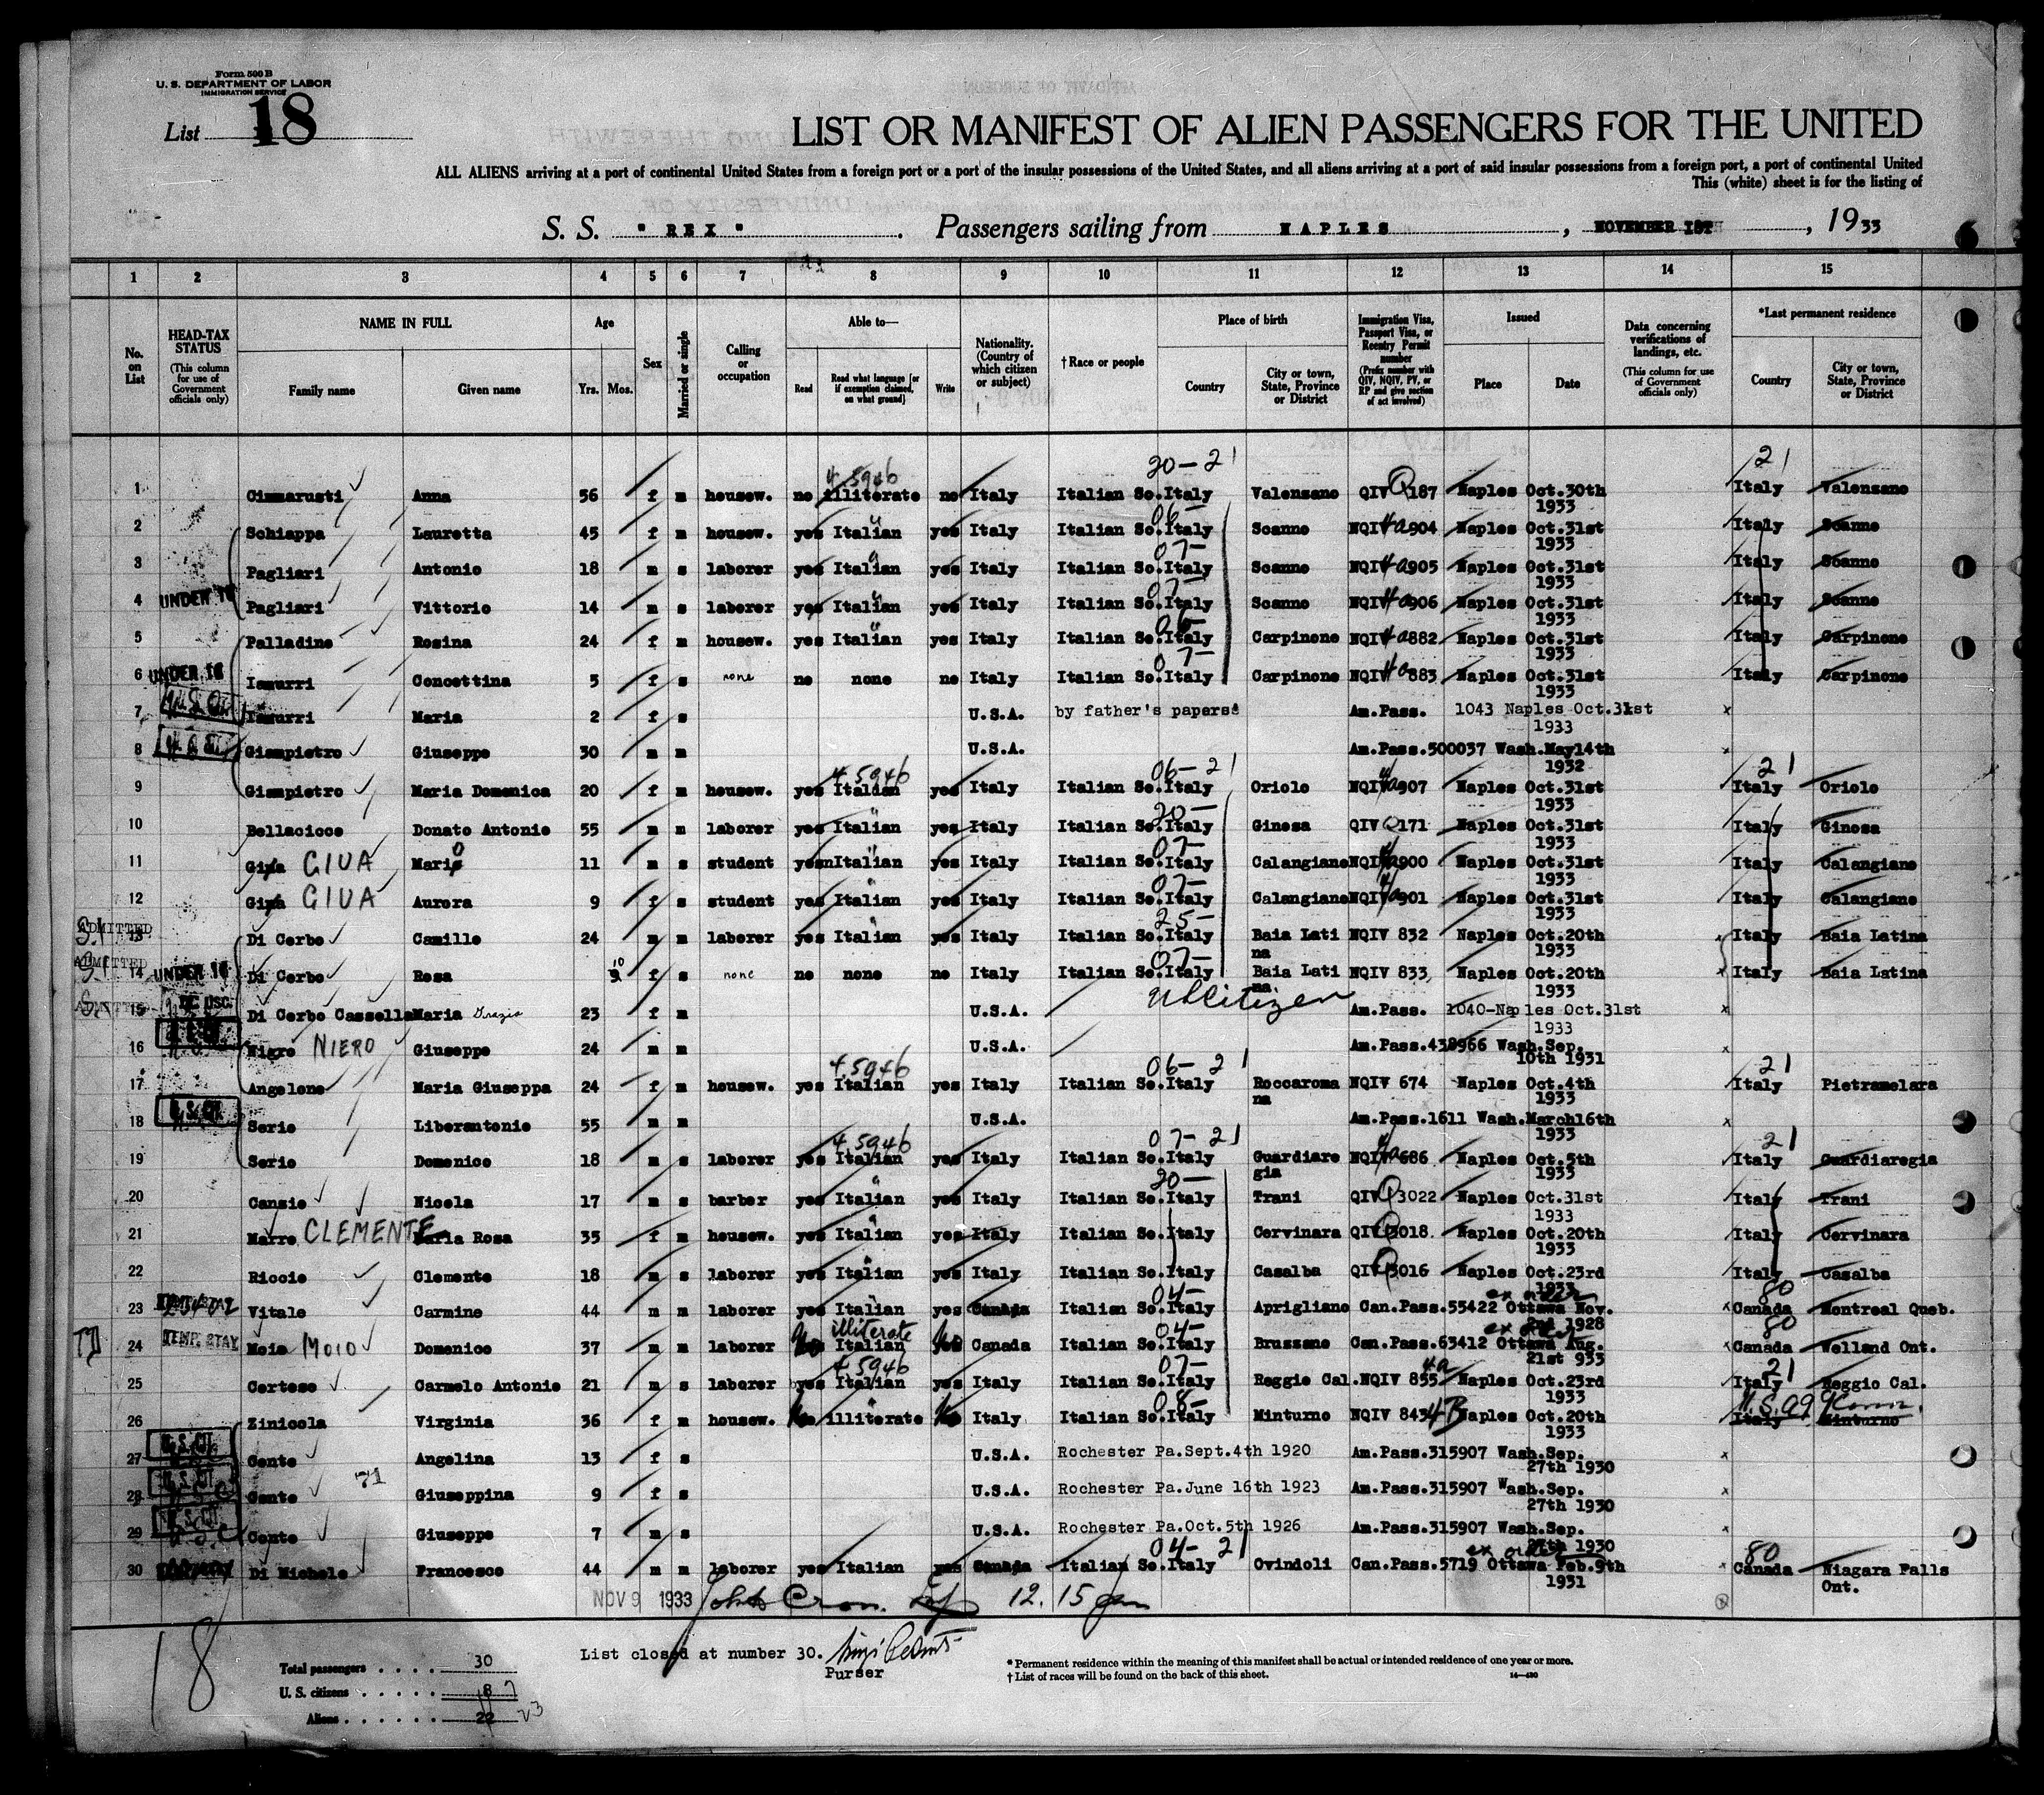 Form 500 B
U. S. DEPARTMENT OF LABOR
IMMIGRATION SERVICE
List 18
LIST OR MANIFEST OF ALIEN PASSENGERS FOR THE UNITED
ALL ALIENS arriving at a port of continental United States from a foreign port or a port of the insular possessions of the United States, and all aliens arriving at a port of said insular possessions from a foreign port, a port of continental United
This (white) sheet is for the listing of
S. S. "REX". Passengers sailing from NAPLES, NOVEMBER 1ST, 1933
1 2 3 4 5 6 7 8 9 10 11 12 13 14 15
No. on List
HEAD-TAX STATUS (This column for use of Government officials only)
NAME IN FULL Family name Given name
Age Yrs. Mos.
Sex
Married or single
Calling or occupation
Able to— Read Read what language [or if exemption claimed, on what ground] Write
Nationality. (Country of which citizen or subject)
†Race or people
Place of birth Country City or town, State, Province or District
Immigration Visa, Passport Visa, or Reentry Permit number (Prefix number with QIV, NQIV, PV, or RP and give section of act involved)
Issued Place Date
Data concerning verifications of landings, etc. (This column for use of Government officials only)
*Last permanent residence Country City or town, State, Province or District
4.5946 20-21 21
1 Cimmarusti Anna 56 f m housew. no illiterate no Italy Italian So. Italy Valenzano QIV 187 Naples Oct.30th 1933 Italy Valenzano
2 Schiappa Lauretta 45 f m housew. yes Italian yes Italy Italian So. Italy Scanno NQIV 904 Naples Oct.31st 1933 Italy Scanno
3 Pagliari Antonio 18 m s laborer yes Italian yes Italy Italian So. Italy Scanno NQIV 905 Naples Oct.31st 1933 Italy Scanno
4 UNDER 16 Pagliari Vittorio 14 m s laborer yes Italian yes Italy Italian So. Italy Scanno NQIV 906 Naples Oct.31st 1933 Italy Scanno
5 Palladino Rosina 24 f m housew. yes Italian yes Italy Italian So. Italy Carpinone NQIV 882 Naples Oct.31st 1933 Italy Carpinone
6 UNDER 16 Iamurri Concettina 5 f s none no none no Italy Italian So. Italy Carpinone NQIV 883 Naples Oct.31st 1933 Italy Carpinone
7 Iamurri Maria 2 f s U.S.A. by father's papers. Am.Pass. 1043 Naples Oct.31st 1933 x
8 Giampietro Giuseppe 30 m m U.S.A. Am.Pass.500037 Wash.May14th 1932 x
4.5946 06-21 21
9 Giampietro Maria Domenica 20 f m housew. yes Italian yes Italy Italian So. Italy Oriolo NQIV 907 Naples Oct.31st 1933 Italy Oriolo
10 Bellacicco Donato Antonio 55 m m laborer yes Italian yes Italy Italian So. Italy Ginosa QIV 171 Naples Oct.31st 1933 Italy Ginosa
11 GIUA Mario 11 m s student yes Italian yes Italy Italian So. Italy Calangiano NQIV 900 Naples Oct.31st 1933 Italy Calangiano
12 GIUA Aurora 9 f s student yes Italian yes Italy Italian So. Italy Calangiano NQIV 901 Naples Oct.31st 1933 Italy Calangiano
ADMITTED
13 Di Cerbo Camillo 24 m m laborer yes Italian yes Italy Italian So. Italy Baia Latina NQIV 832 Naples Oct.20th 1933 Italy Baia Latina
ADMITTED
14 UNDER 16 Di Cerbo Rosa 10 f s none no none no Italy Italian So. Italy Baia Latina NQIV 833 Naples Oct.20th 1933 Italy Baia Latina
ADMITTED
15 Di Cerbo Cassella Maria Grazia 23 f m U.S.A. US Citizen Am.Pass. 1040-Naples Oct.31st 1933 x
16 Nigro NIERO Giuseppe 24 m m U.S.A. Am.Pass.438966 Wash.Sep. 10th 1931 x
4.5946 06-21 21
17 Angelone Maria Giuseppa 24 f m housew. yes Italian yes Italy Italian So. Italy Roccaromana NQIV 674 Naples Oct.4th 1933 Italy Pietramelara
18 U.S.CIT. Serio Liberantonio 55 m m U.S.A. Am.Pass.1611 Wash.March16th 1933 x
4.5946 07-21 21
19 Serio Domenico 18 m s laborer yes Italian yes Italy Italian So. Italy Guardiaregia NQIV 686 Naples Oct.5th 1933 Italy Guardiaregia
20 Canzio Nicola 17 m s barber yes Italian yes Italy Italian So. Italy Trani QIV 3022 Naples Oct.31st 1933 Italy Trani
21 Marro CLEMENTE Maria Rosa 35 f m housew. yes Italian yes Italy Italian So. Italy Cervinara QIV 3018 Naples Oct.20th 1933 Italy Cervinara
22 Riccio Clemente 18 m s laborer yes Italian yes Italy Italian So. Italy Casalba QIV 3016 Naples Oct.23rd 1933 Italy Casalba
23 Vitale Carmine 44 m m laborer yes Italian yes Canada Italian So. Italy Aprigliano Can.Pass.55422 Ottawa Nov. 2nd 1928 x Canada Montreal Queb.
24 TEMP. STAY Moio MOIO Domenico 37 m m laborer illiterate Italian Canada Italian So. Italy Bruzzano Can.Pass.63412 Ottawa Aug. 21st 933 x Canada Welland Ont.
25 Cortese Carmelo Antonio 21 m s laborer yes Italian yes Italy Italian So. Italy Reggio Cal. NQIV 855 Naples Oct.23rd 1933 Italy Reggio Cal.
26 Zinicola Virginia 36 f m housew. No illiterate No Italy Italian So. Italy Minturno NQIV 843 4B Naples Oct.20th 1933 Italy Minturno
27 U.S.CIT. Conte Angelina 13 f s U.S.A. Rochester Pa.Sept.4th 1920 Am.Pass.315907 Wash.Sep. 27th 1930 x
28 U.S.CIT. Conte 71 Giuseppina 9 f s U.S.A. Rochester Pa.June 16th 1923 Am.Pass.315907 Wash.Sep. 27th 1930 x
29 U.S.CIT. Conte Giuseppe 7 m s U.S.A. Rochester Pa.Oct.5th 1926 Am.Pass.315907 Wash.Sep. 27th 1930 x
04-21 80
30 Di Michele Francesco 44 m m laborer yes Italian yes Canada Italian So. Italy Ovindoli Can.Pass.5719 Ottawa Feb.9th 1931 x Canada Niagara Falls Ont.
NOV 9 1933 12.15 pm
18
List closed at number 30.
Purser
Total passengers . . . . 30
U. S. citizens . . . . . 8 7
Aliens . . . . . . 22 23
* Permanent residence within the meaning of this manifest shall be actual or intended residence of one year or more.
† List of races will be found on the back of this sheet.
14—430